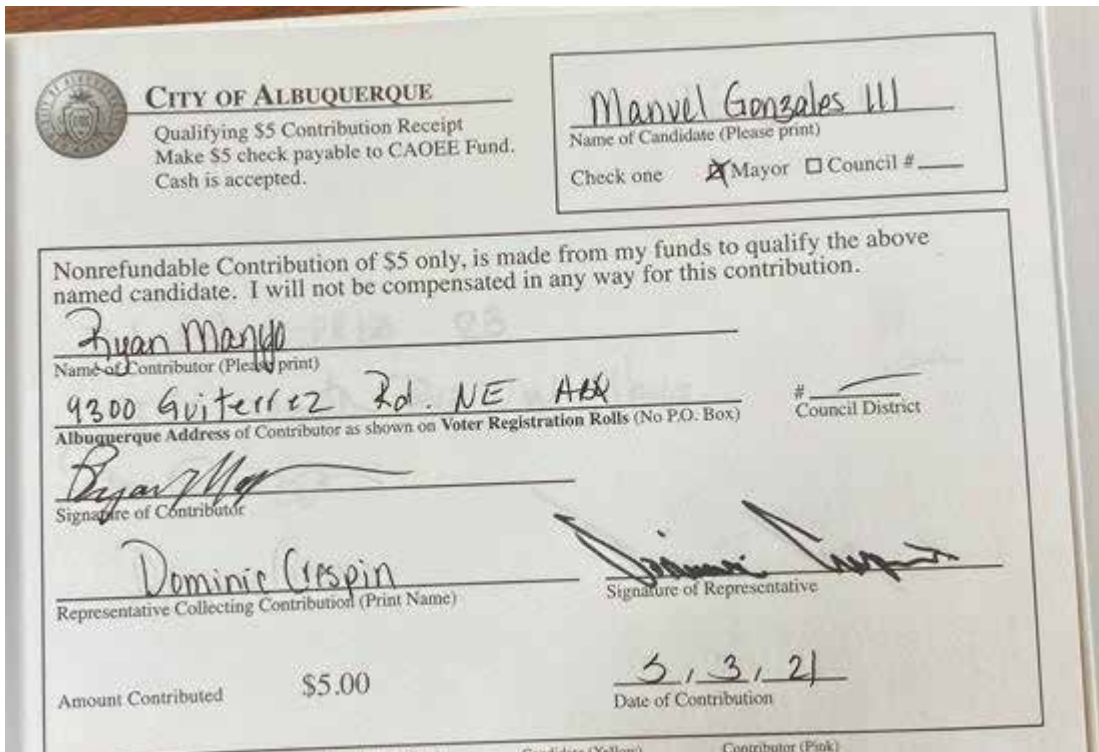 CITY OF ALBUQUERQUE
Qualifying $5 Contribution Receipt
Make $5 check payable to CAOEE Fund.
Cash is accepted.
Manuel Gonzales III
Name of Candidate (Please print)
Check one Mayor Council #
Nonrefundable Contribution of $5 only, is made from my funds to qualify the above
named candidate. I will not be compensated in any way for this contribution.
Ryan
Name of Contributor (Please print)
9300 Guiterrez Rd. NE ABQ
#
Albuquerque Address of Contributor as shown on Voter Registration Rolls (No P.O. Box)
Council District
Signature of Contributor
Dominic Crespin
Representative Collecting Contribution (Print Name)
Signature of Representative
Amount Contributed $5.00
5, 3, 21
Date of Contribution
Candidate (Yellow) Contributor (Pink)